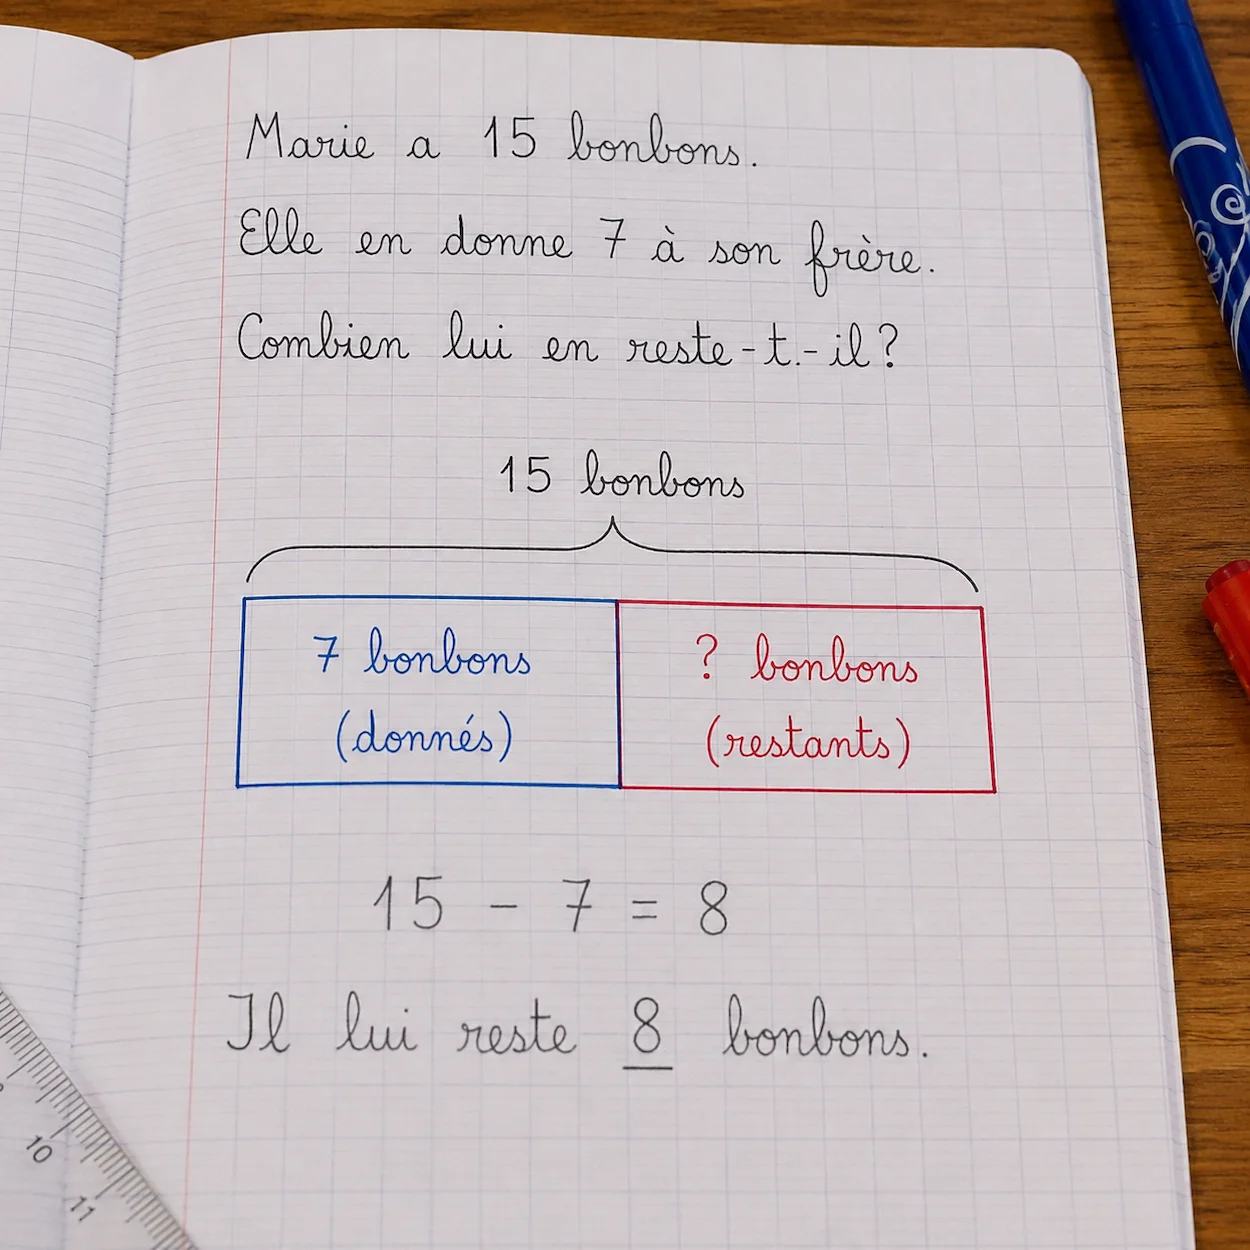 Marie a 15 bonbons.
Elle en donne 7 à son frère.
Combien lui en reste-t.-il?
15 bonbons
7 bonbons
(donnés)
? bonbons
(restants)
15 - 7 = 8
Il lui reste 8 bonbons.
10
11